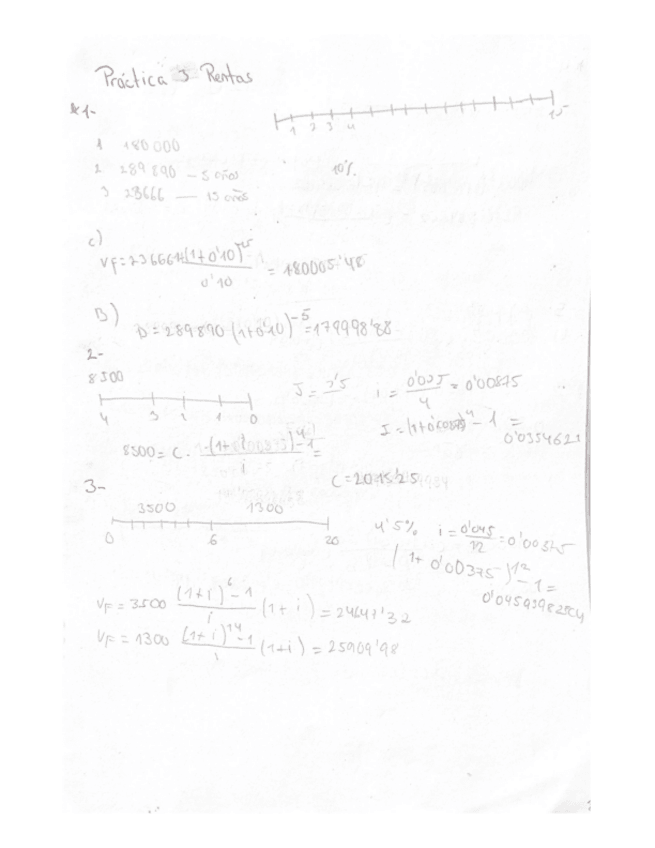 Práctica 3 Rentas
1-
1 2 3 4 15
1 180 000
2 289 890 - 5 años
3 23666 — 15 años
10%
c)
= 180005'48
0'10
B)
D = 289.890 (1+0'10)^-5 = 179998'88
2-
8500
4 3 1 1 0
i = 0'035/4 = 0'00875
J = (1+0'00875)^4 - 1 =
0'0354621
8500 = C ·
C = 2015'25
3-
3500 1300
0 6 20
4'5% i = 0'045/12 = 0'00375
(1+ 0'00375)^12 - 1 =
VF = 3500 (1+i)^6 - 1/i (1+i) = 24647'32
VF = 1300 (1+i)^14 - 1/i (1+i) = 25909'98